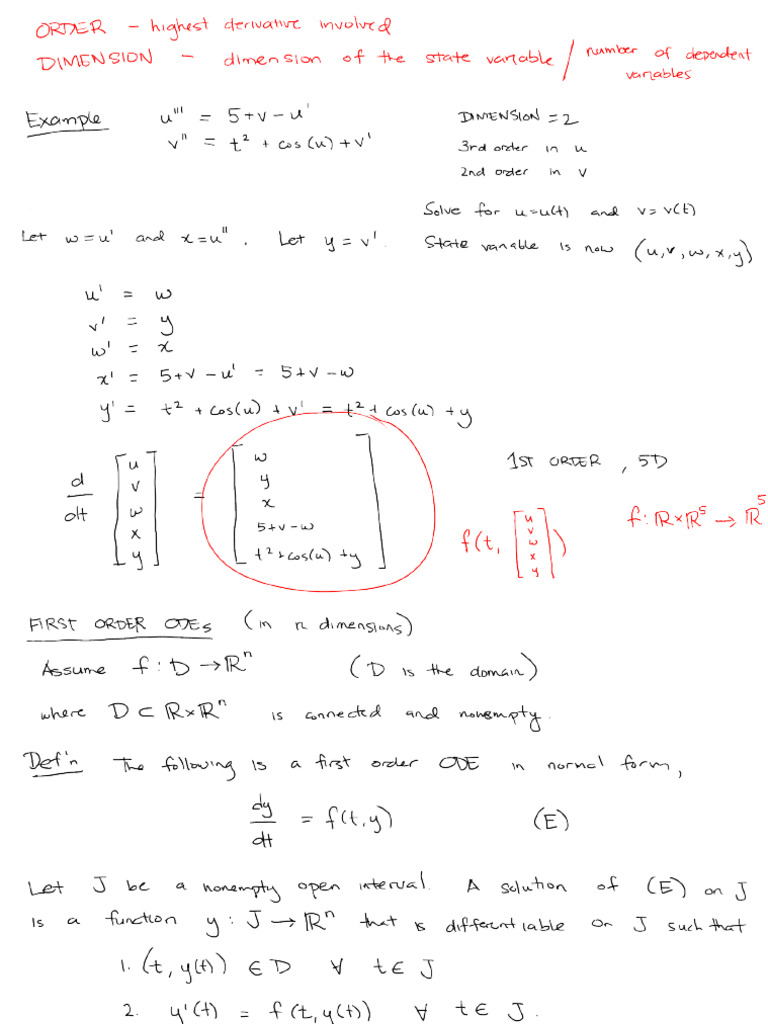 ORDER - highest derivative involved
DIMENSION - dimension of the state variable / number of dependent variables
Example u''' = 5+v-u' DIMENSION = 2
v'' = t² + cos(u) + v' 3rd order in u
2nd order in v
Solve for u=u(t) and v=v(t)
Let w=u' and x=u''. Let y=v'. State variable is now (u,v,w,x,y)
u' = w
v' = y
w' = x
x' = 5+v-u' = 5+v-w
y' = t² + cos(u) + v' = t² + cos(u) + y
d/dt [u v w x y] = [w y x 5+v-w t²+cos(u)+y] 1ST ORDER, 5D
f(t, [u v w x y]) f: ℝ×ℝ⁵ → ℝ⁵
FIRST ORDER ODEs (in n dimensions)
Assume f: D → ℝⁿ (D is the domain)
where D ⊂ ℝ×ℝⁿ is connected and nonempty.
Def'n The following is a first order ODE in normal form,
dy/dt = f(t,y) (E)
Let J be a nonempty open interval. A solution of (E) on J
is a function y: J → ℝⁿ that is differentiable on J such that
1. (t, y(t)) ∈ D ∀ t ∈ J
2. y'(t) = f(t, y(t)) ∀ t ∈ J.